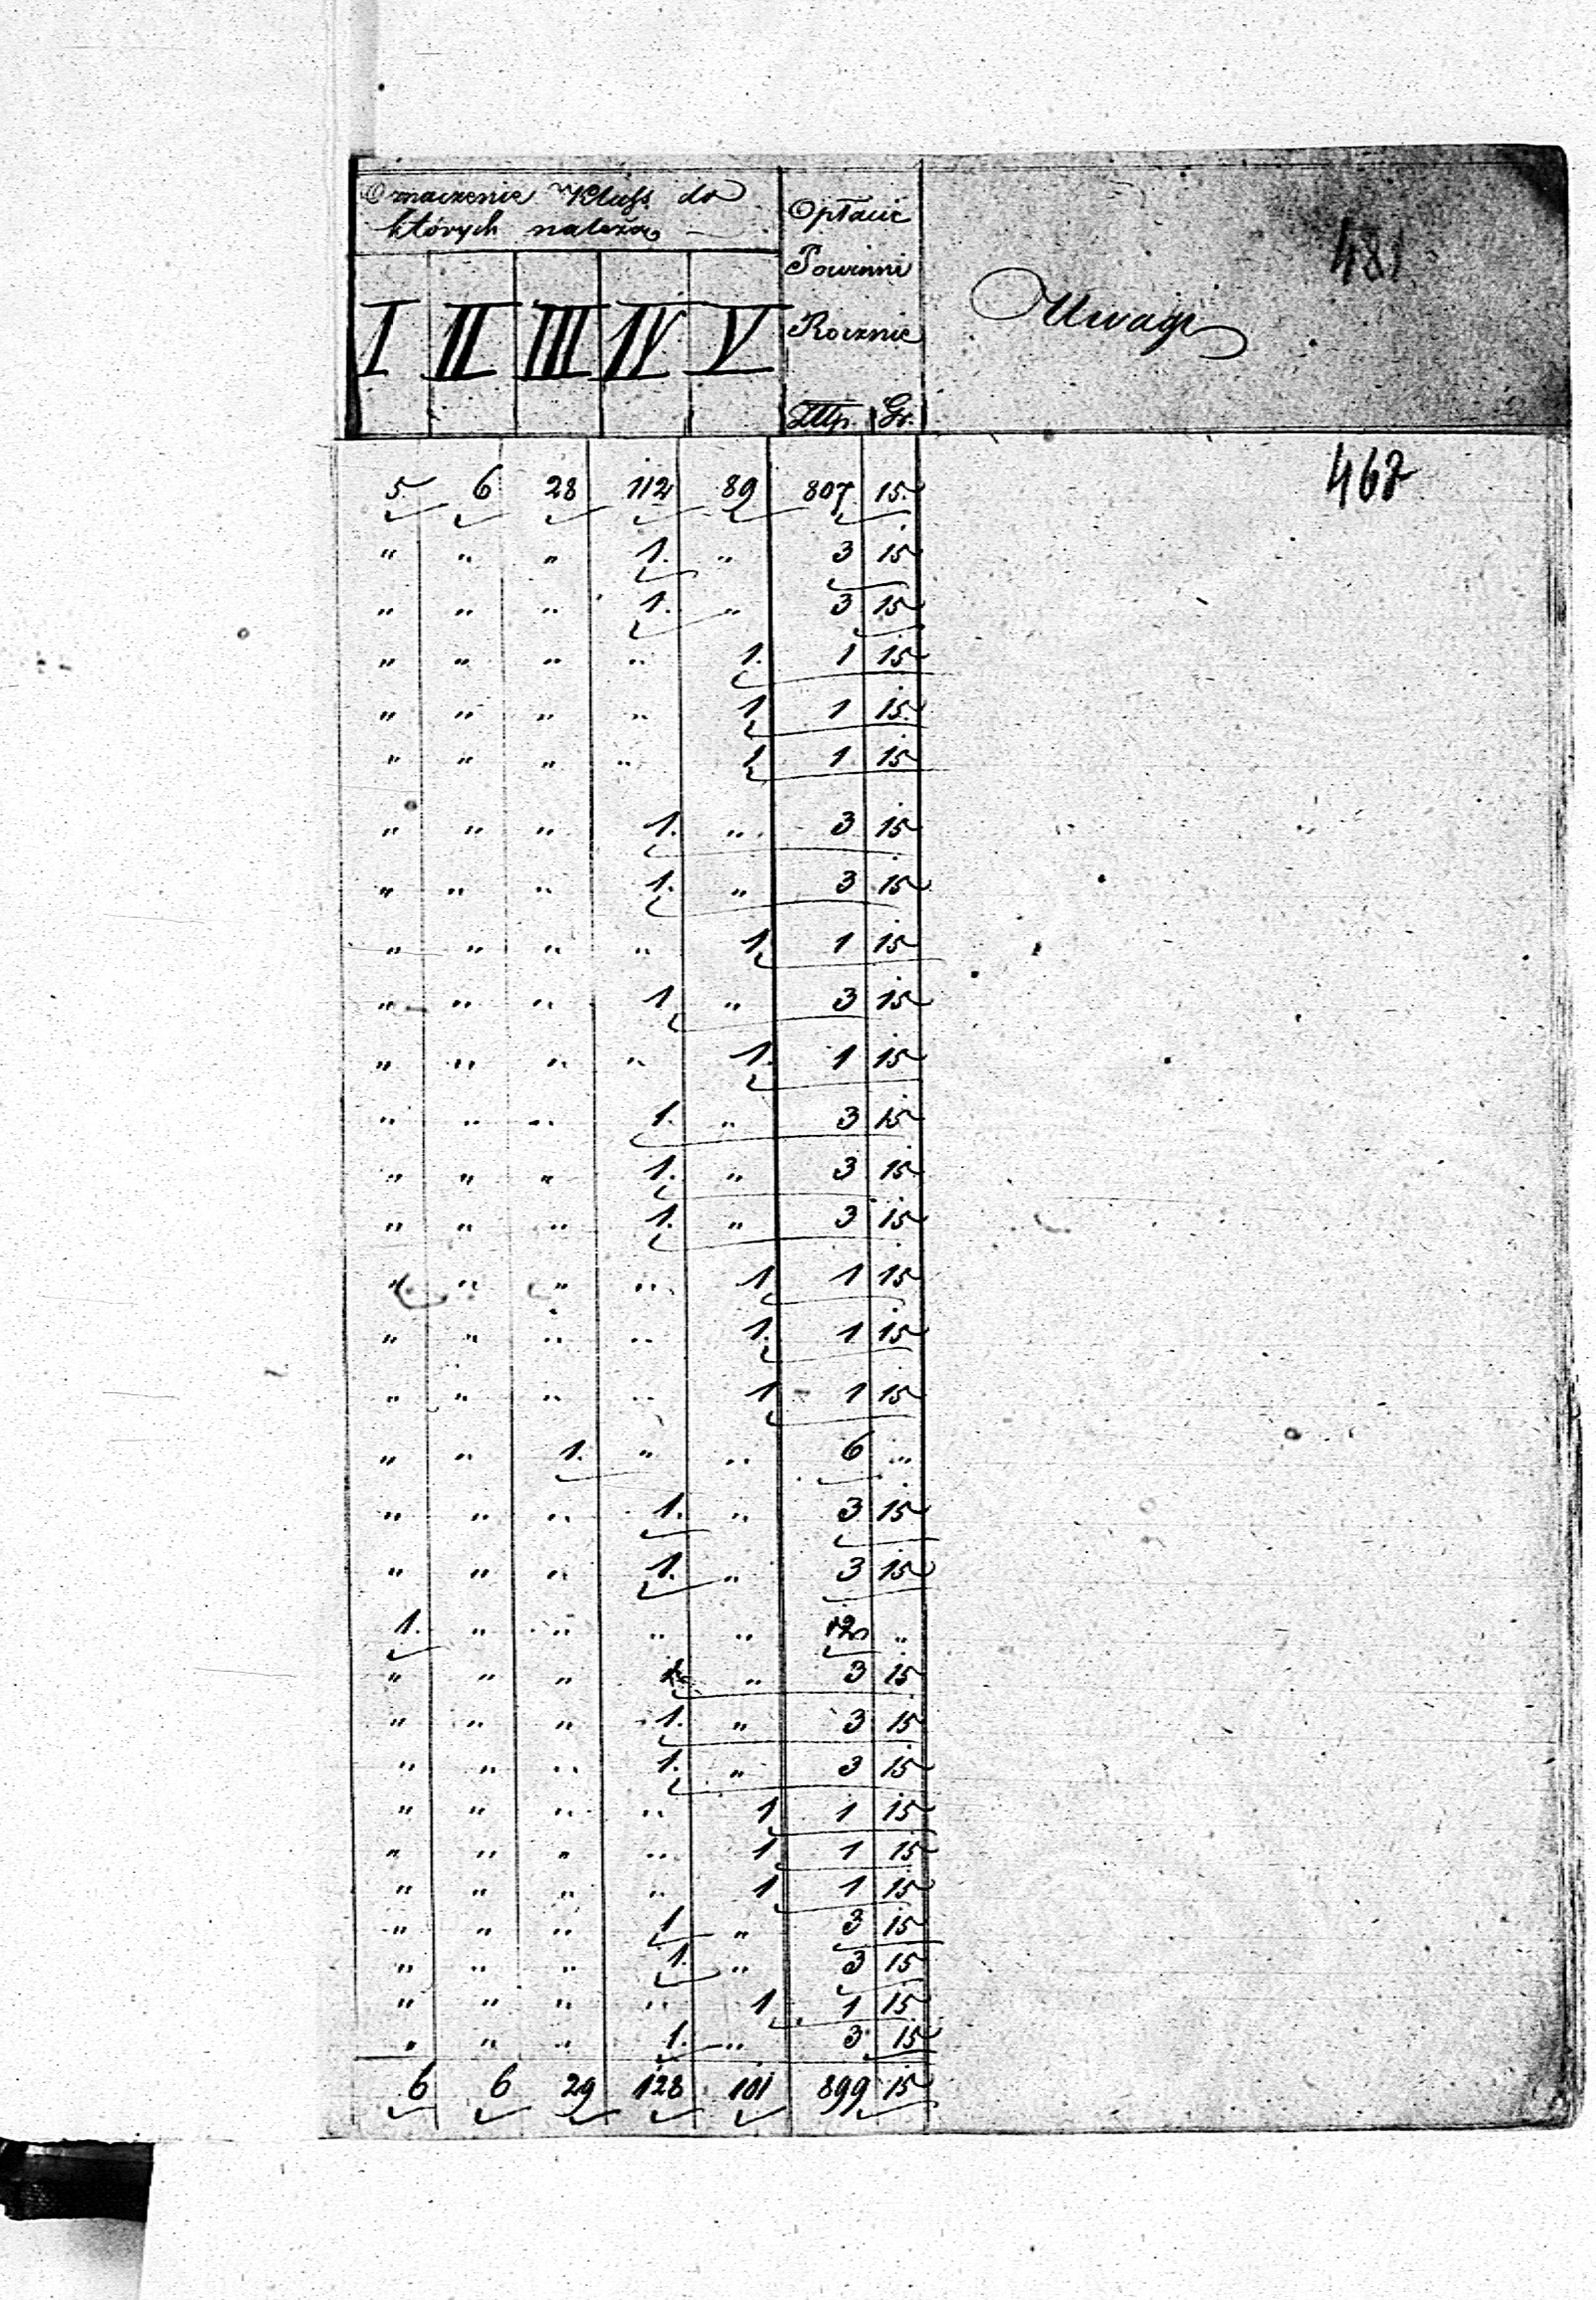 Oznaczenie Klass do
których należą
Opłacić
Powinni
Rocznie
481
Uwagi
I II III IV V
Złłp. Gr.
468
5 6 28 112 89 807 15
" " " 1. " 3 15
" " " 1. " 3 15
" " " " 1. 1 15
" " " " 1 1 15
" " " " 1 1 15
" " " 1. " 3 15
" " " 1. " 3 15
" " " " 1. 1 15
" " " 1 " 3 15
" " " " 1. 1 15
" " " 1. " 3 15
" " " 1. " 3 15
" " " 1. " 3 15
" " " " 1 1 15
" " " " 1. 1 15
" " " " 1 1 15
" " 1. " " 6 "
" " " 1. " 3 15
" " " 1. " 3 15
1. " " " " 12 "
" " " 1. " 3 15
" " " 1. " 3 15
" " " 1. " 3 15
" " " " 1 1 15
" " " " 1 1 15
" " " " 1 1 15
" " " 1 " 3 15
" " " 1. " 3 15
" " " " 1 1 15
" " " 1. " 3 15
6 6 29 128 101 899 15